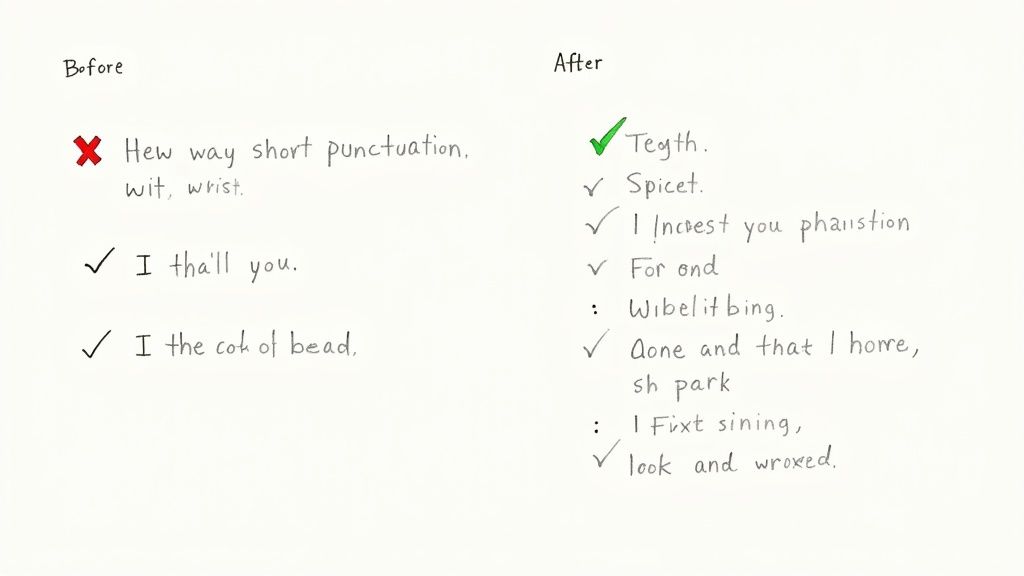 Bofore
Hew way short punctuation,
wit, wrist.
I tha'll you.
I the cok of bead,
After
Tegth.
Spicet.
I you
For ond
Wibelit bing.
Aone and that I home,
sh park
I Fixt sining,
look and wroxed.